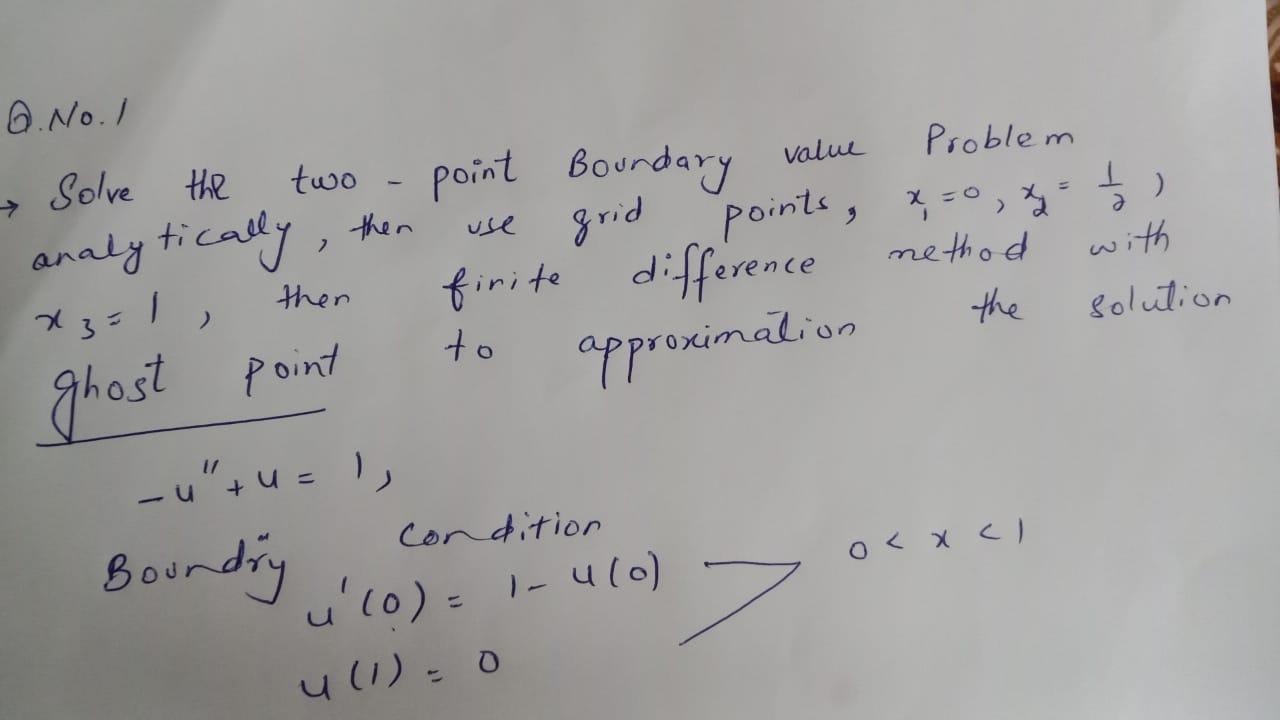 Q.No.1
→ Solve the two-point Boundary value Problem
analytically, then use grid points, x₁=0, x₂=1/2,
x₃=1, then finite difference method with
ghost point to approximation the solution
-u''+u=1,
Boundry condition
u'(0)=1-u(0) 0<x<1
u(1)=0